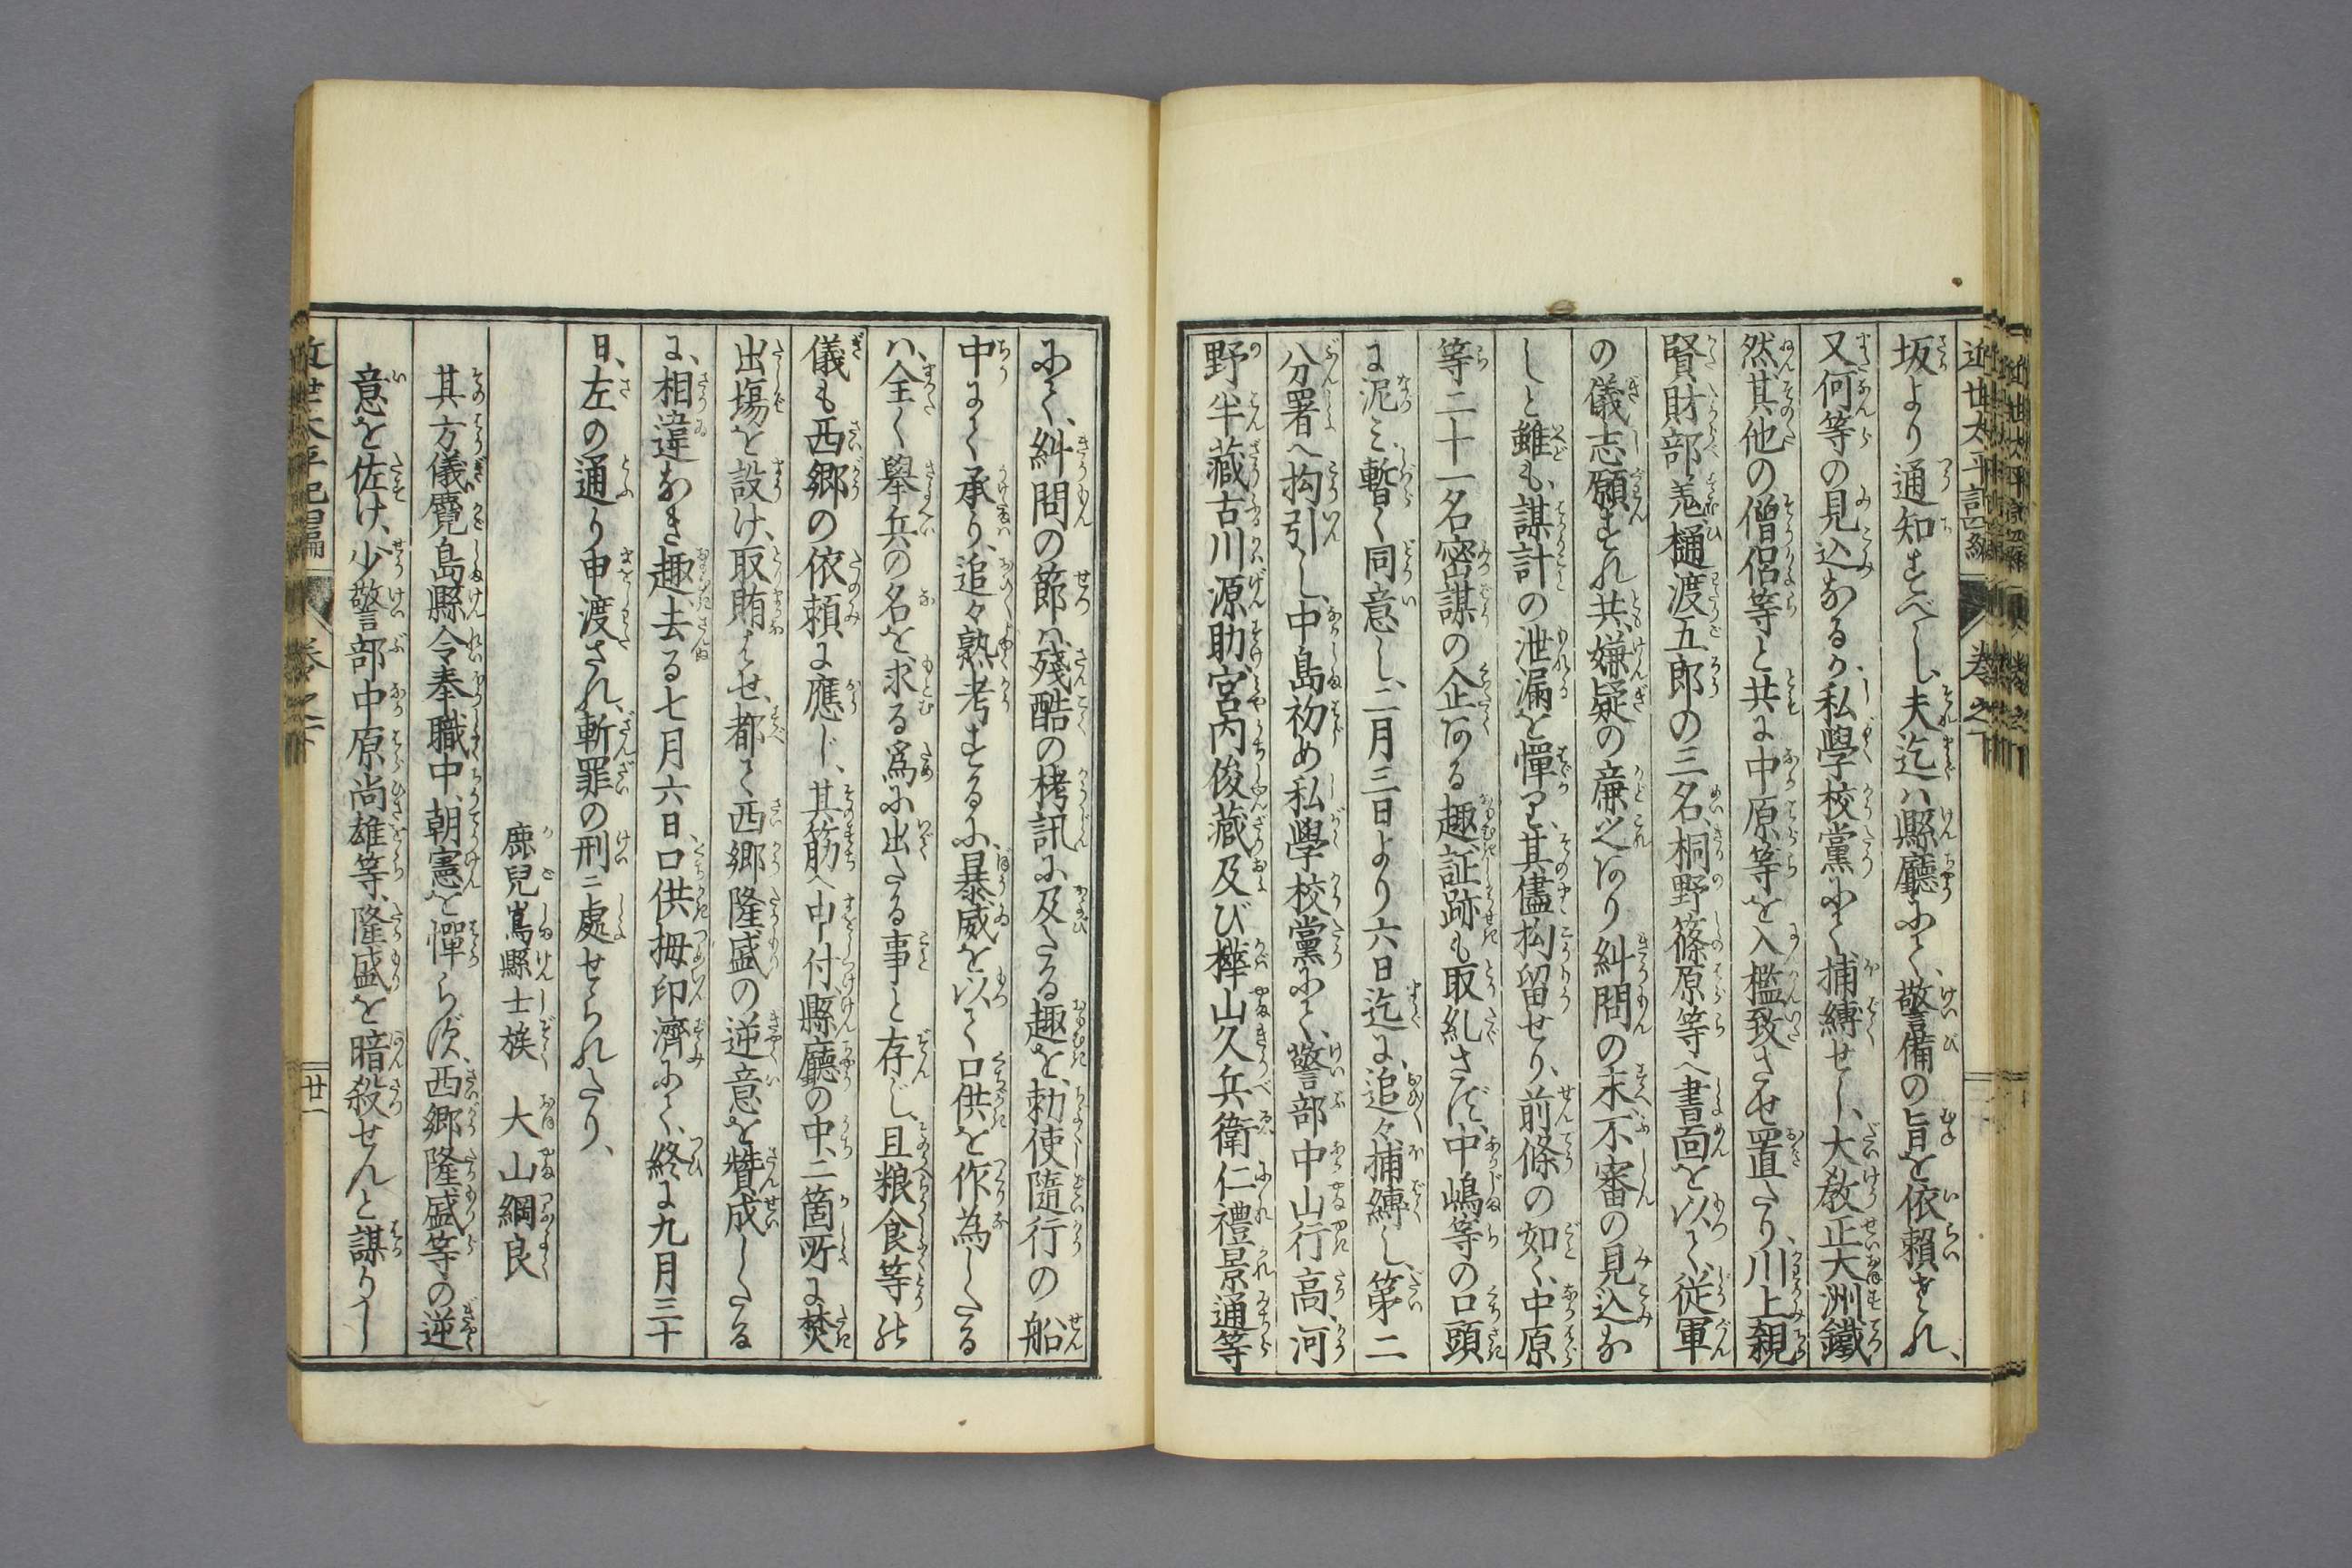 坂より通知すべし、夫迄ハ縣廳にて、警備の旨を依頼され、
又何等の見込なるか、私學校黨にて捕縛せし、大敎正大洲鐵
然其他の僧侶等と共に中原等を入檻致させ置たり、川上親
賢財部羗樋渡五郎の三名、桐野篠原等へ書面を以て、従軍
の儀志願すれ共、嫌疑の廉之あり糾問の末不審の見込な
しと雖も、謀計の泄漏を憚り、其儘拘留せり、前條の如く、中原
等二十一名密謀の企ある趣、証跡も取糺さず、中嶋等の口頭
に泥ミ、暫く同意し、二月三日より六日迄に、追々捕縛し、第二
分署へ拘引し、中島初め私學校黨にて、警部中山行高、河
野半藏古川源助宮内俊藏及び樺山久兵衛仁禮景通等
にて、糾問の節ハ、殘酷の栲訊に及たる趣を、勅使隨行の船
中にて承り、追々熟考するに、暴威を以て口供を作為したる
ハ、全く擧兵の名を求る爲に出たる事と存じ、且粮食等の
儀も西郷の依頼に應じ、其筋へ申付、縣廳の中、二箇所に焚
出塲を設け、取賄はせ、都て西郷隆盛の逆意を贊成したる
に、相違なき趣、去る七月六日、口供拇印濟にて、終に九月三十
日、左の通り申渡され、斬罪の刑ニ處せられたり、
鹿兒嶌縣士族 大山綱良
其方儀麑島縣令奉職中、朝憲を憚らず、西郷隆盛等の逆
意を佐け、少警部中原尚雄等、隆盛を暗殺せんと謀りし
廿一